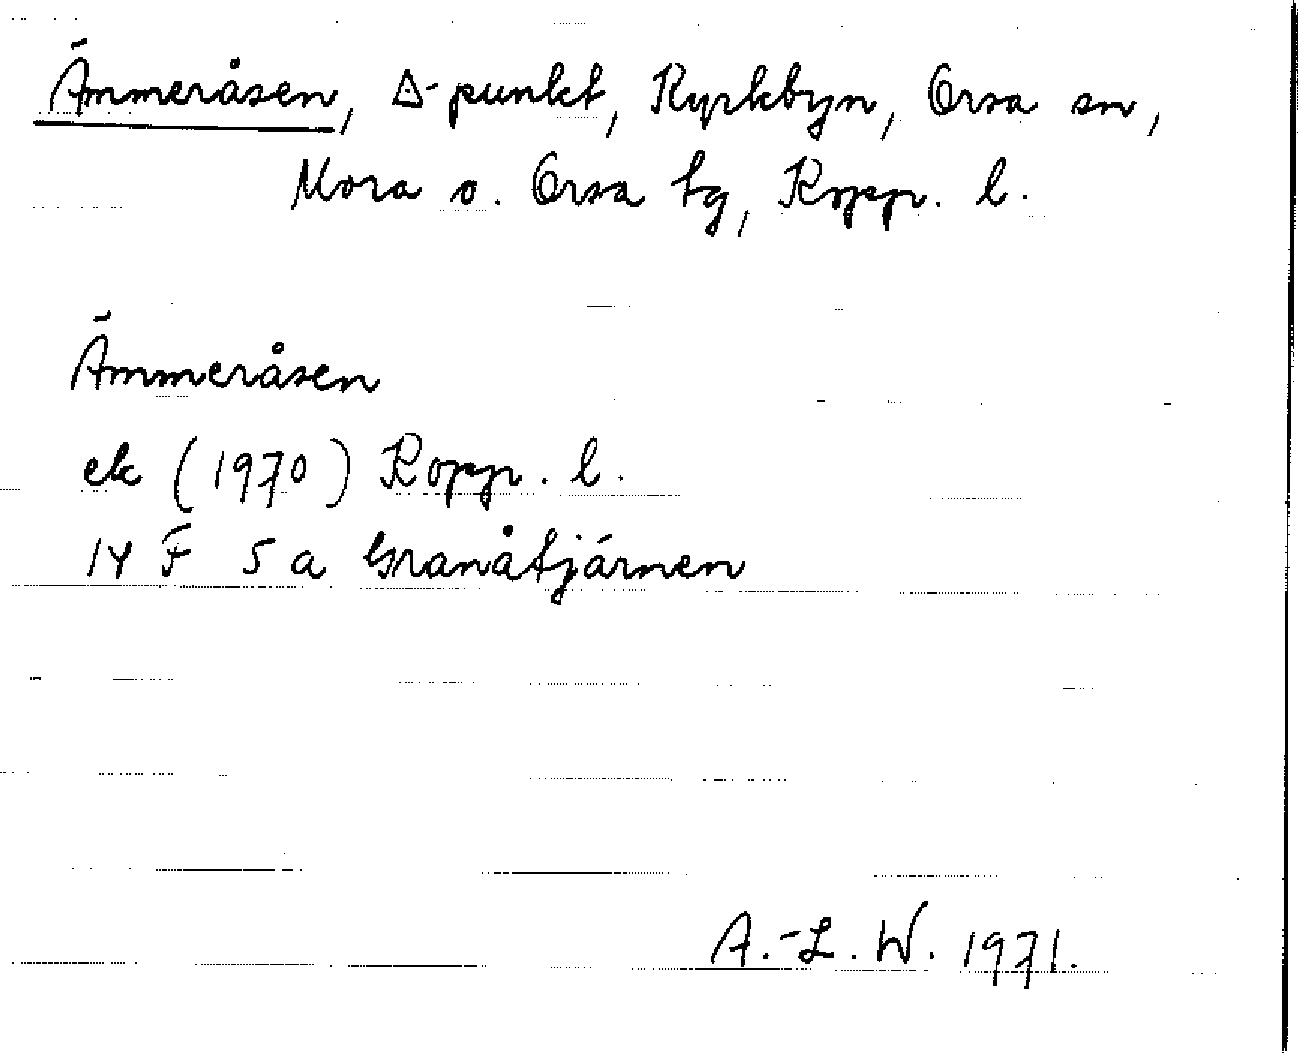 Ämmeråsen, Δ-punkt, Kyrkbyn, Orsa sn,
Mora o. Orsa tg, Kopp. l.
Ämmeråsen
ek (1970) Kopp. l.
14 F 5 a Granåtjärnen
A.-L. W. 1971.